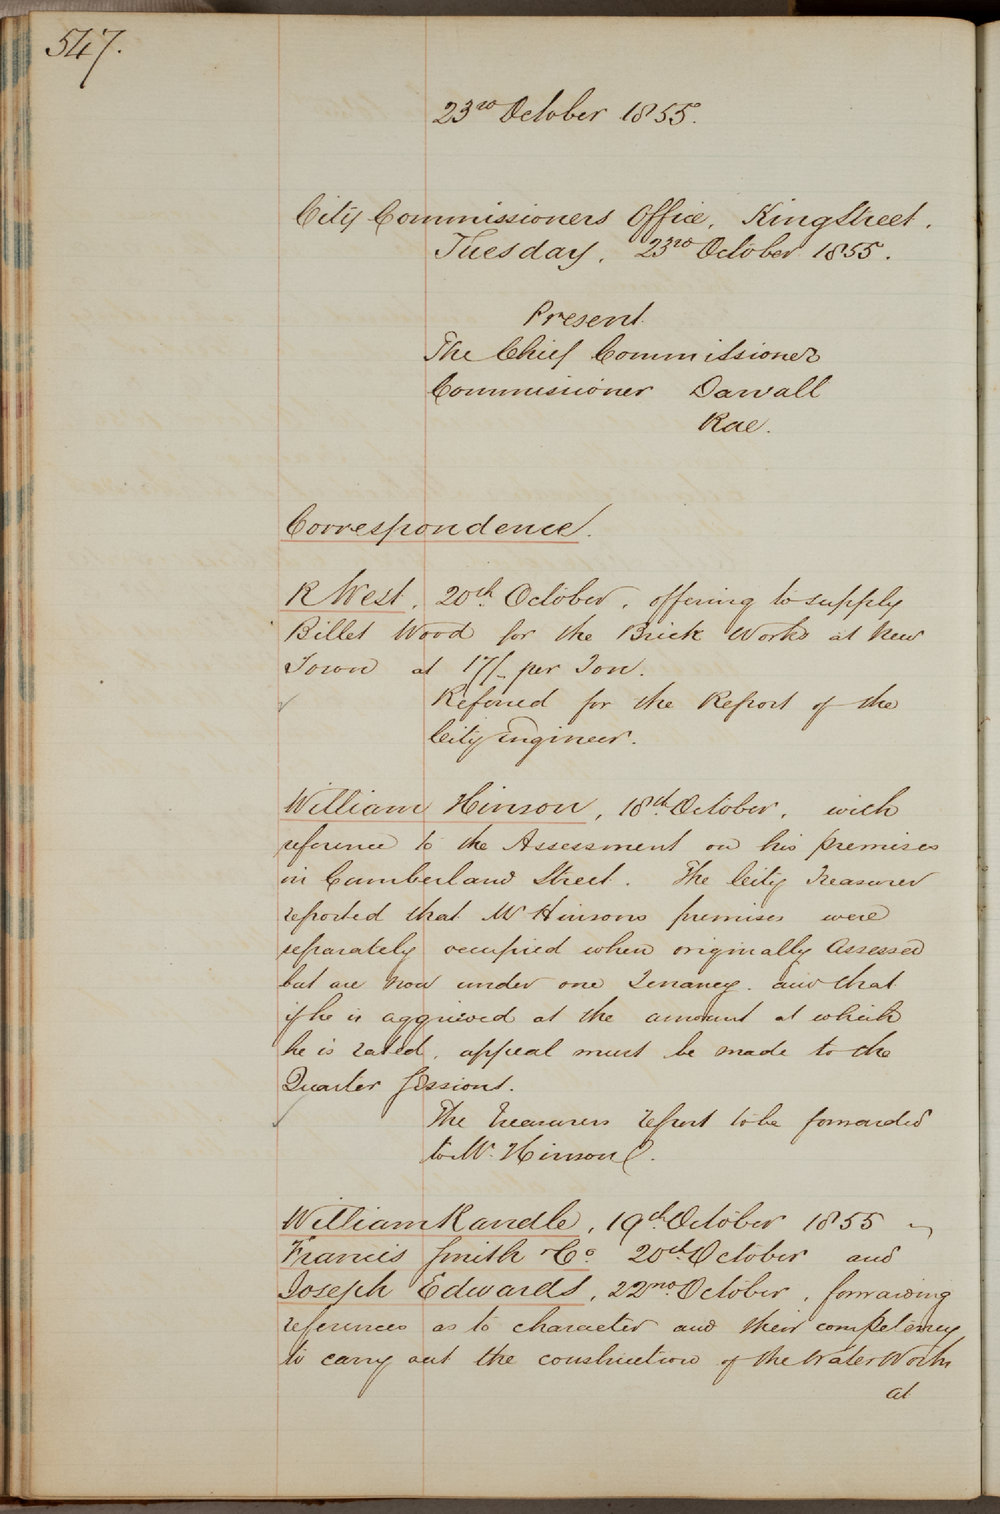 547.
23rd October 1855.
City Commissioners Office, King Street.
Tuesday, 23rd October 1855.
Present
The Chief Commissioner
Commissioner Darvall
Rae.
Correspondence.
R West, 20th October, offering to supply
Billet Wood for the Brick Works at New
Town at 17/- per Ton.
Referred for the Report of the
City Engineer.
William Hinson, 18th October, with
reference to the Assessment on his premises
in Cumberland Street. The City Treasurer
reported that Mr Hinsons premises were
separately occupied when originally Assessed
but are now under one Tenancy. and that
if he is aggrieved at the amount at which
he is rated, appeal must be made to the
Quarter Sessions.
The Treasurers report to be forwarded
to Mr. Hinson.
William Randle, 19th October 1855
Francis Smith & Co. 20th October and
Joseph Edwards, 22nd October, forwarding
references as to character and their competency
to carry out the construction of the Water Works
at